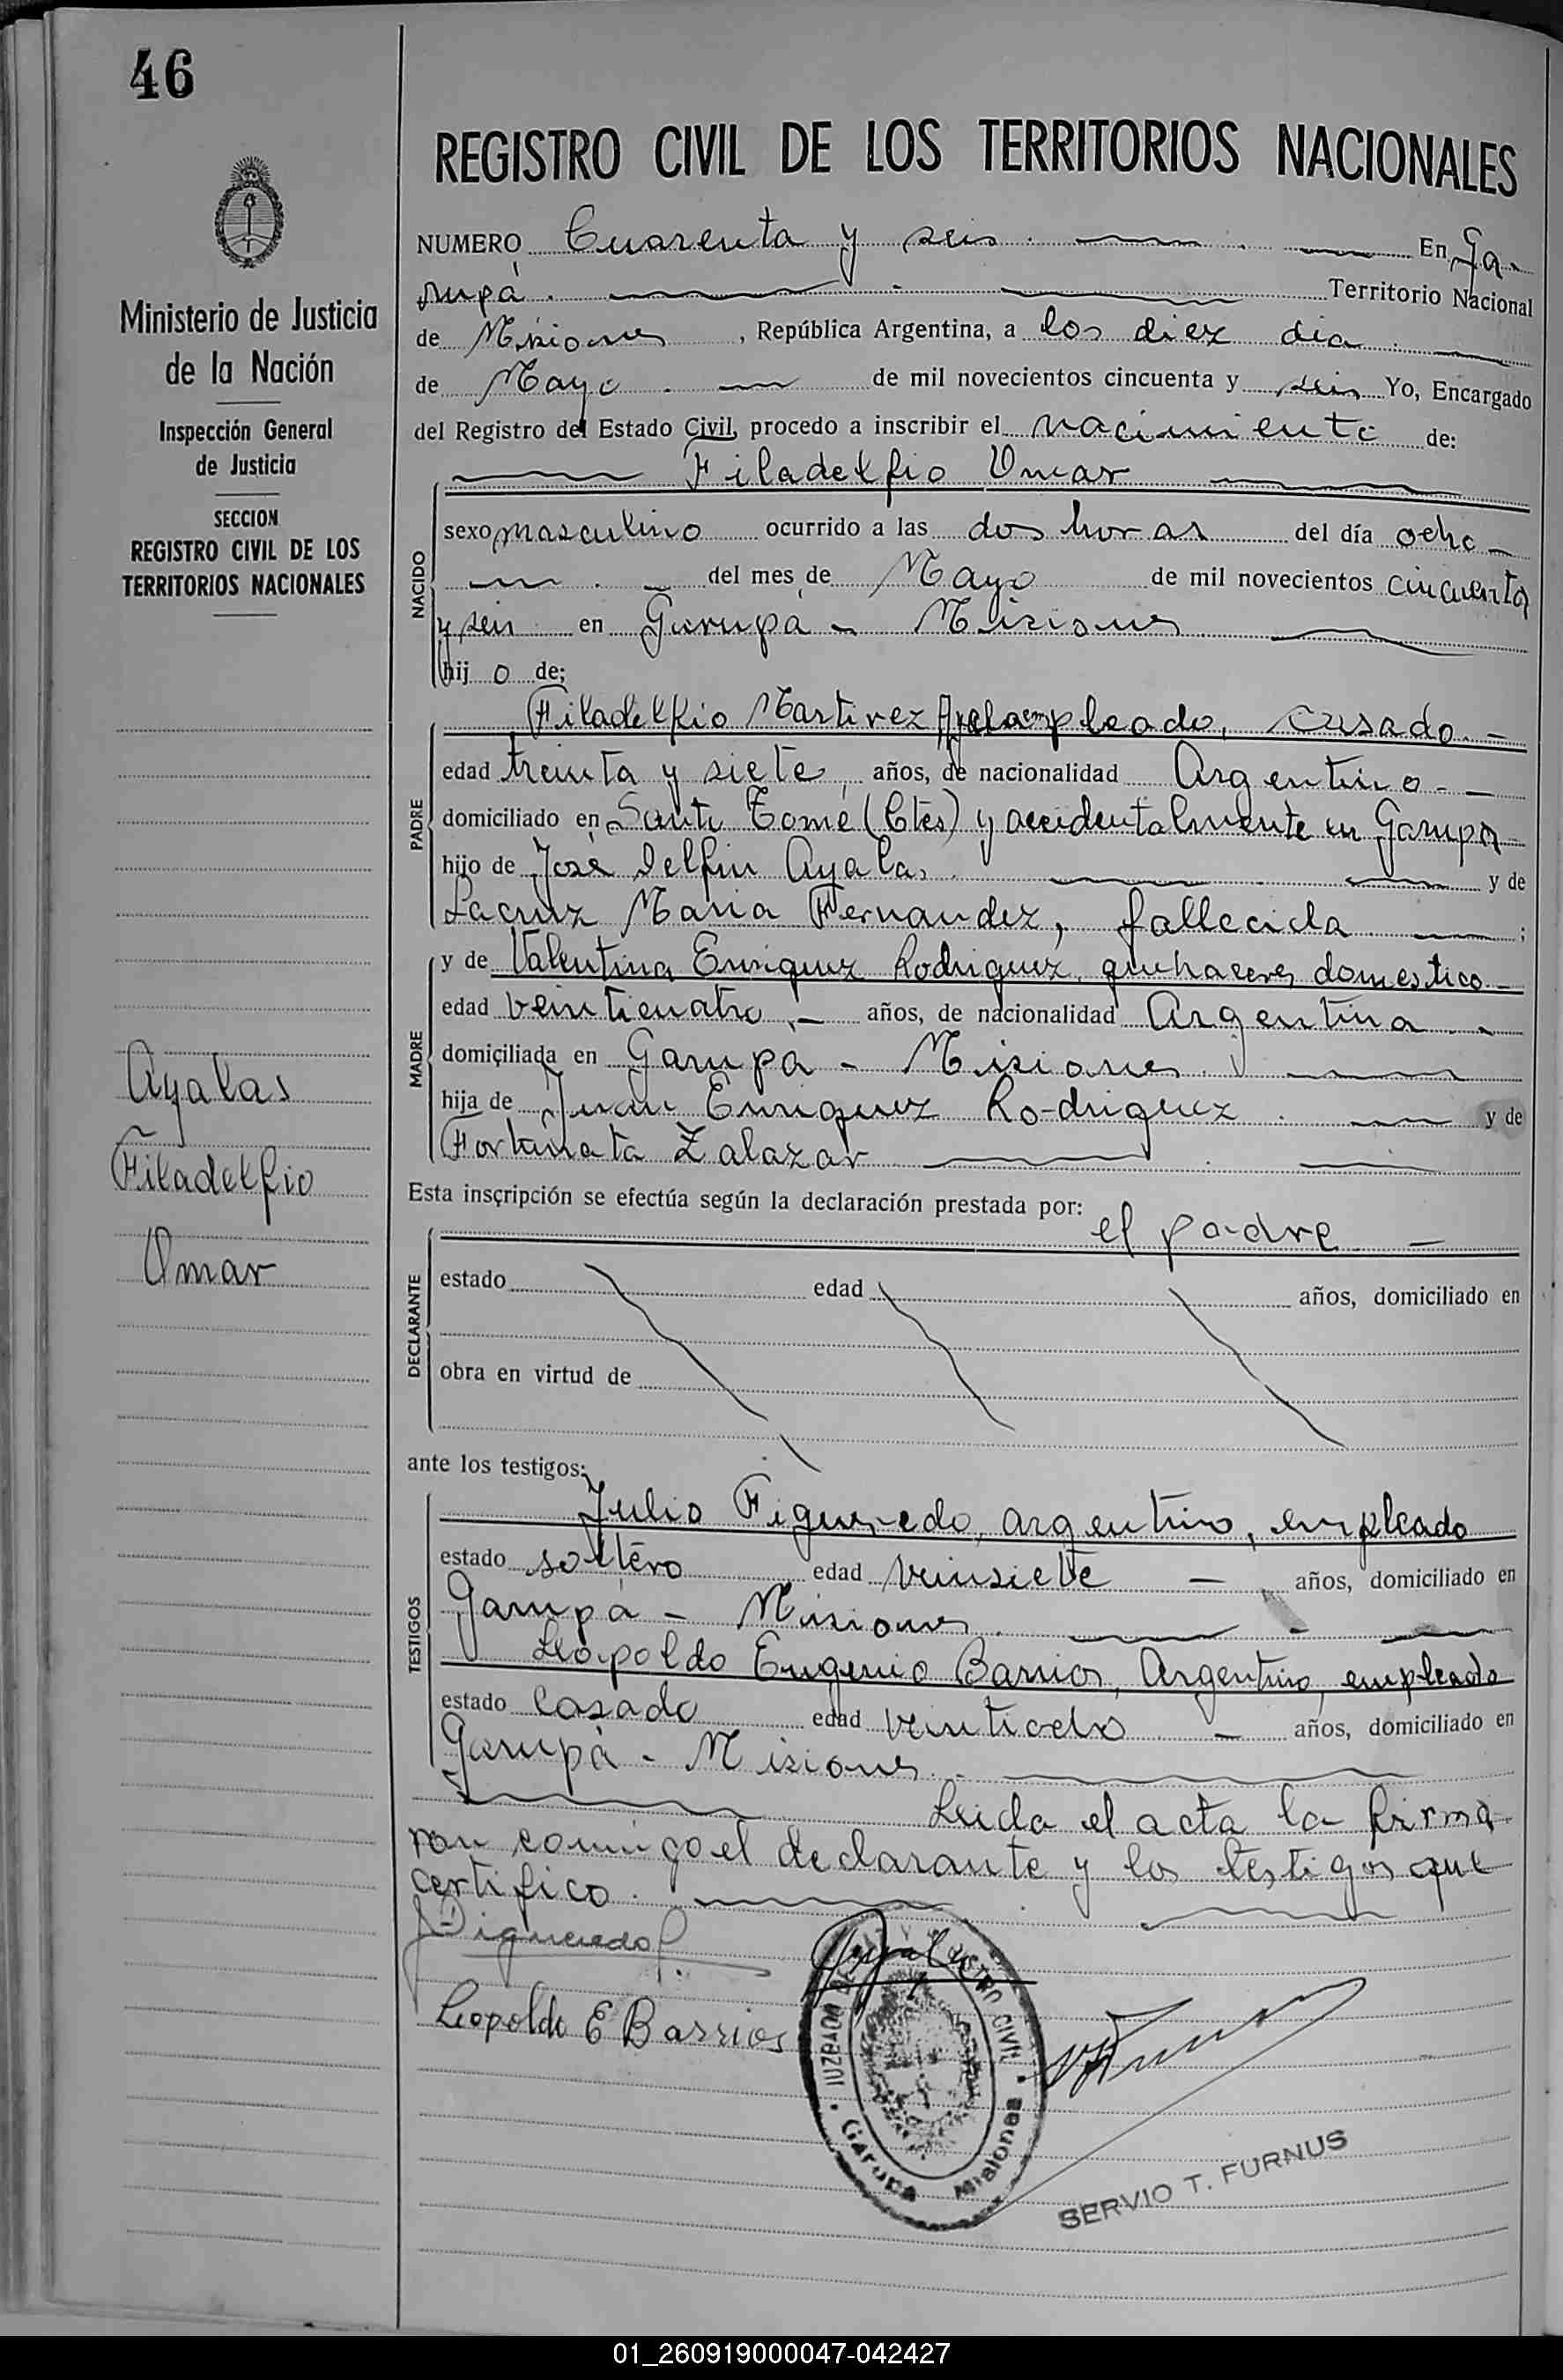 46
REGISTRO CIVIL DE LOS TERRITORIOS NACIONALES
Ministerio de Justicia
de la Nación
Inspección General
de Justicia
SECCION
REGISTRO CIVIL DE LOS
TERRITORIOS NACIONALES
Ayalas
Filadelfio
Omar
NUMERO Cuarenta y seis. En Ga-
rupá. Territorio Nacional
de Misiones, República Argentina, a los diez dia
de Mayo. de mil novecientos cincuenta y seis Yo, Encargado
del Registro del Estado Civil, procedo a inscribir el nacimiento de:
Filadelfio Omar
NACIDO
sexo masculino ocurrido a las dos horas del día ocho
del mes de Mayo de mil novecientos cincuenta
y seis en Garupá - Misiones
hijo de;
PADRE
Filadelfio Martirez empleado, casado. -
edad treinta y siete, años, de nacionalidad Argentino. -
domiciliado en Santo Tomé (Ctes) y accidentalmente en Garupá
hijo de José Delfin Ayalas y de
Lacruz Maria Fernandez, fallecida ;
MADRE
y de Valentina Enriquez Rodriguez, quehaceres domestico -
edad veinticuatro, - años, de nacionalidad Argentina. -
domiciliada en Garupá - Misiones.
hija de Juan Enriquez Rodriguez. y de
Fortunata Zalazar
Esta inscripción se efectúa según la declaración prestada por:
el padre -
DECLARANTE
estado edad años, domiciliado en
obra en virtud de
ante los testigos:
TESTIGOS
Julio Figueredo, argentino, empleado
estado soltero edad veinsiete - años, domiciliado en
Garupá - Misiones.
Leopoldo Eugenio Barrios, Argentino, empleado
estado Casado edad veintiocho - años, domiciliado en
Garupá - Misiones.
Leida el acta la firma-
ron comigo el declarante y los testigos que
certifico.
Figueredo
Leopoldo E Barrios
JUZGADO DE PAZ Y REGISTRO CIVIL
Garupá Misiones
SERVIO T. FURNUS
01_260919000047-042427